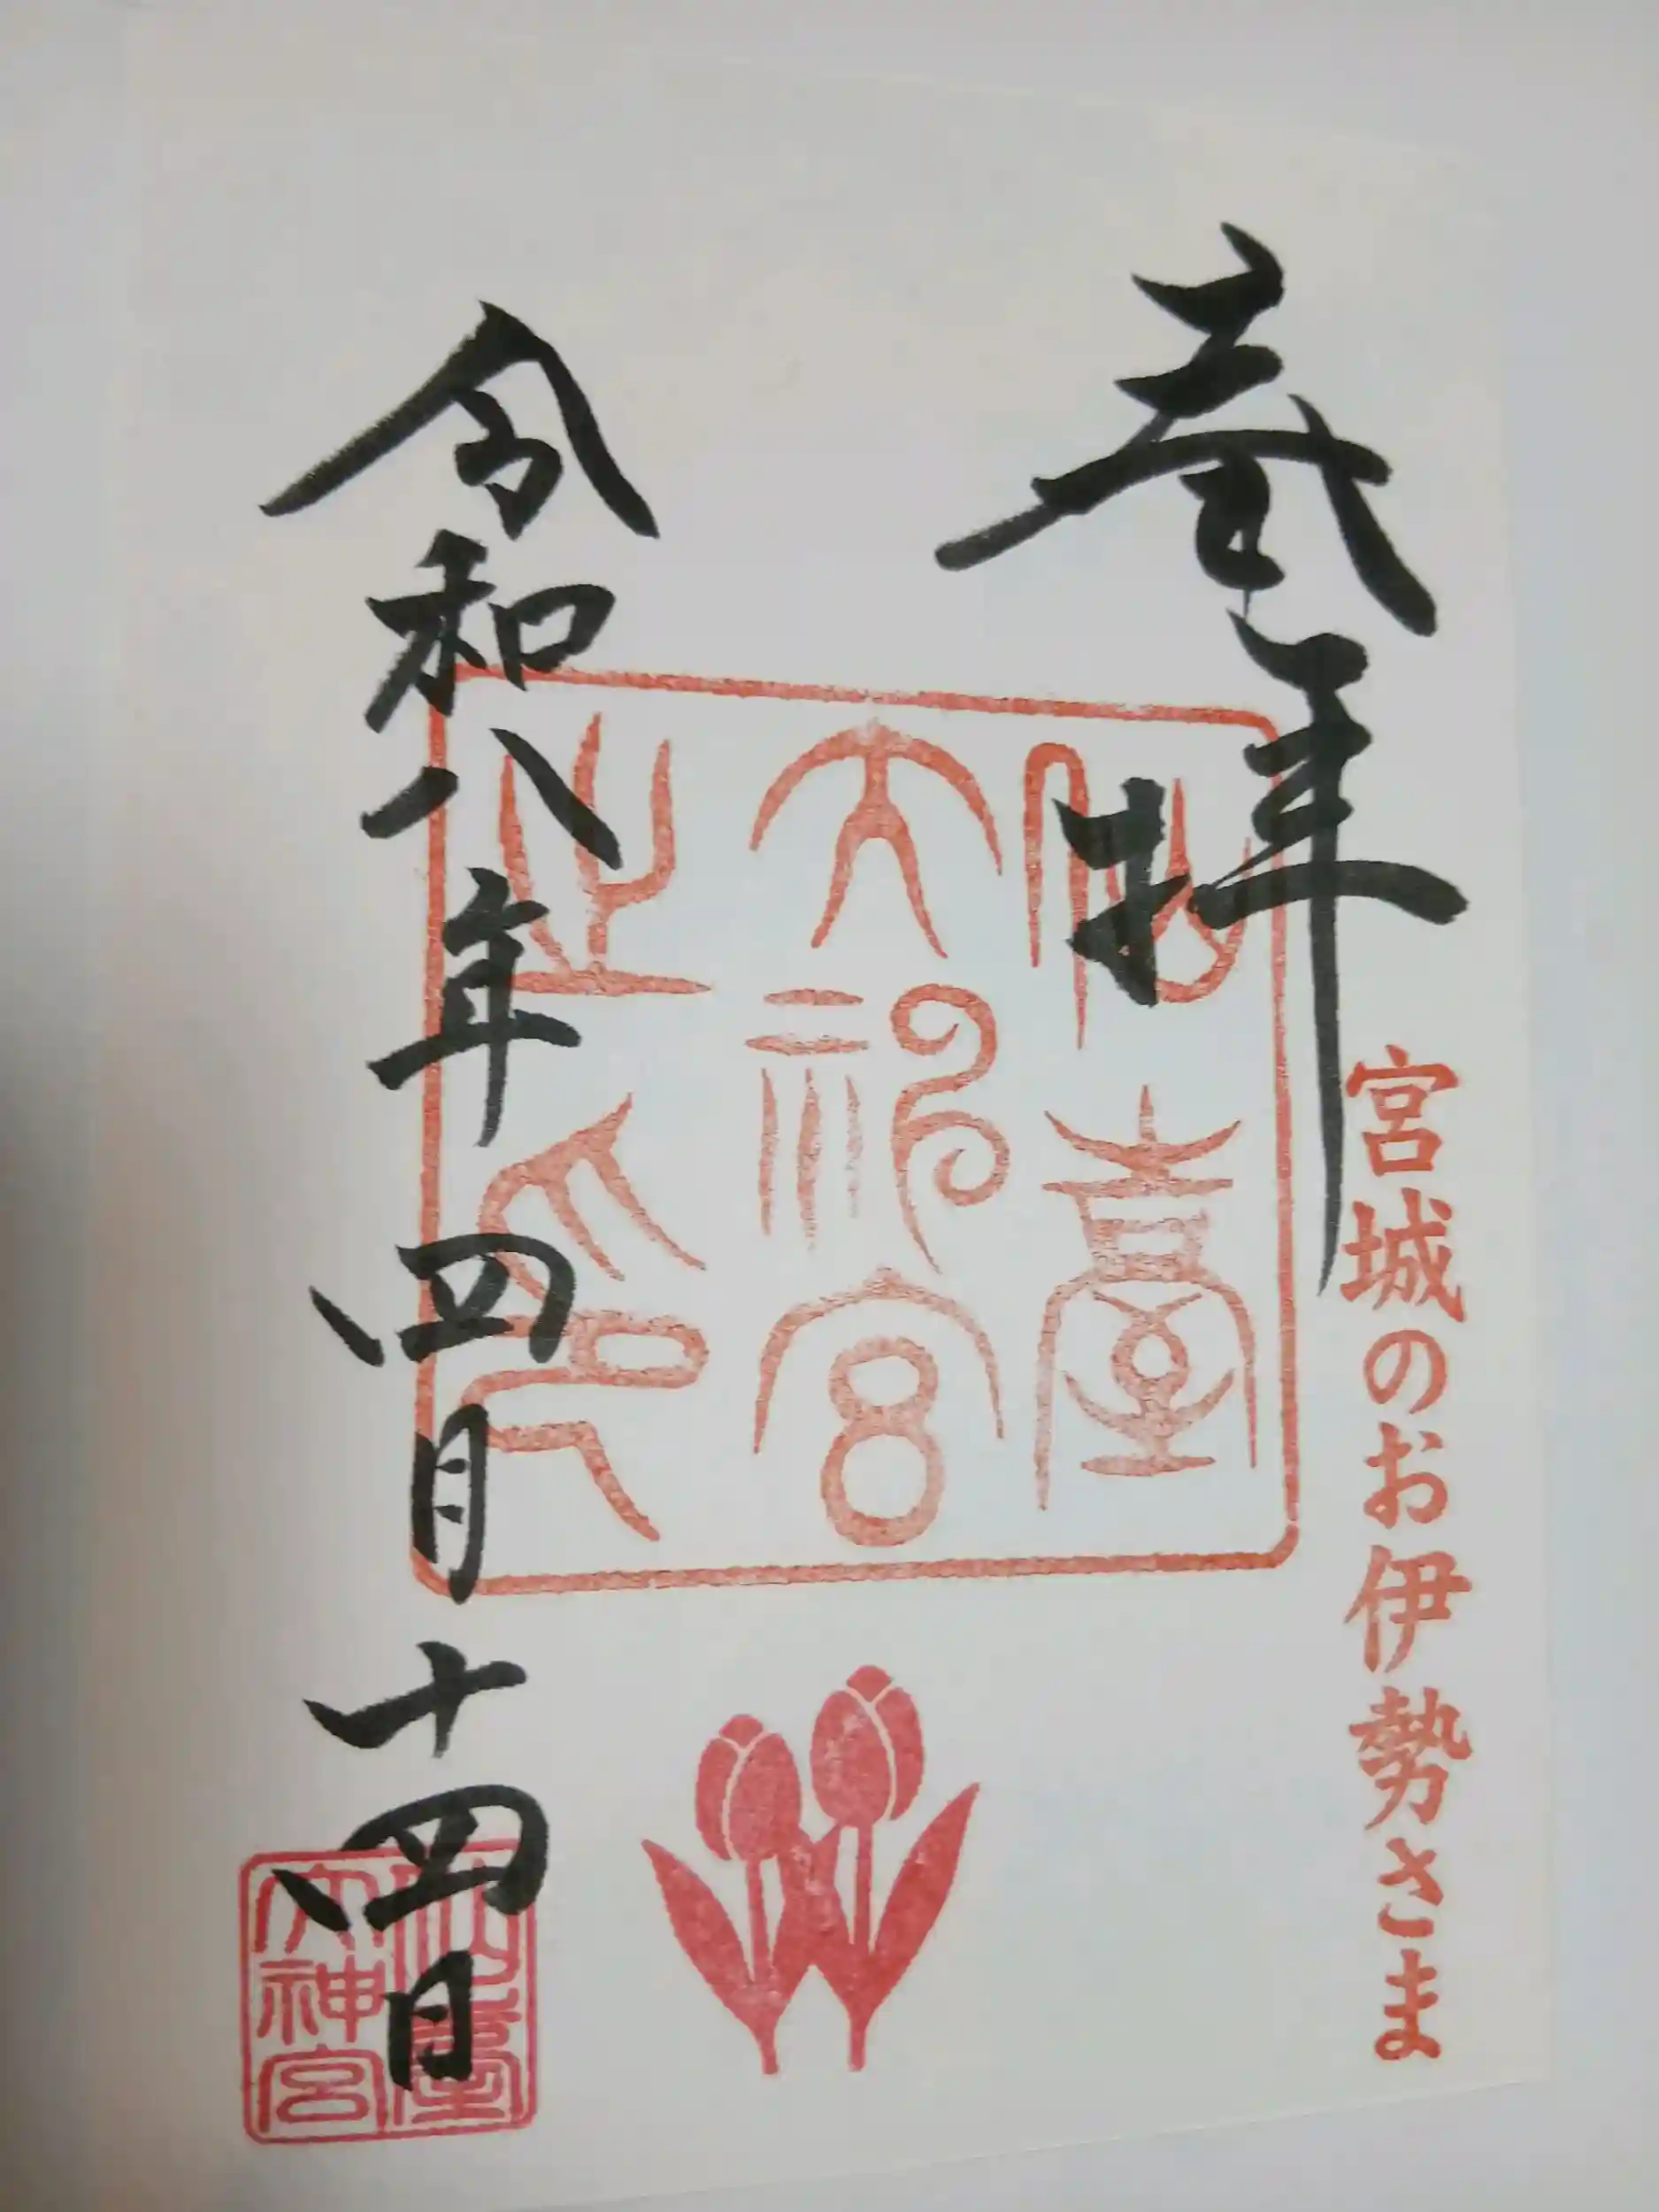 奉拝
宮城のお伊勢さま
仙臺
大神宮
之印
令和八年四月十四日
仙臺
大神宮